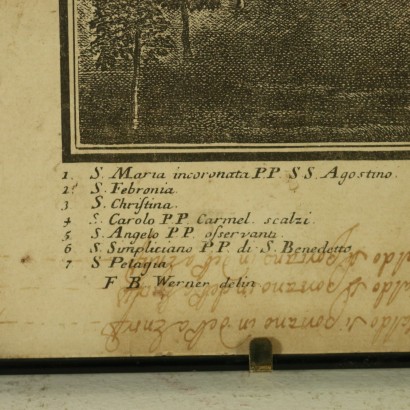 1. S. Maria incoronata P.P. S S. Agostino.
2. S. Febronia.
3 S. Christina.
4 S. Carolo P.P. Carmel. scalzi.
5. S. Angelo P.P. osservanti.
6 S. Simpliciano P.P. di S. Benedetto
7 S. Pelagia.
F B Werner delin